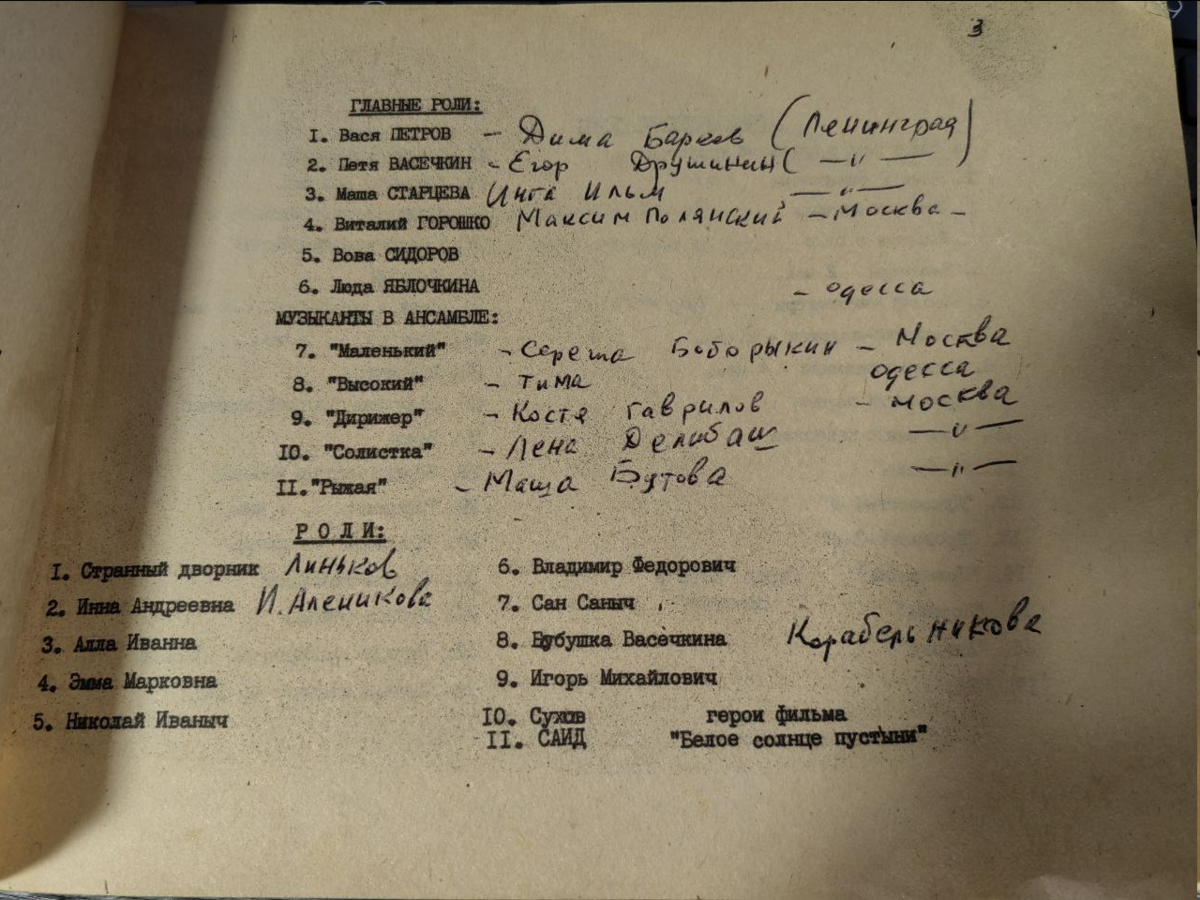 3
ГЛАВНЫЕ РОЛИ:
I. Вася ПЕТРОВ – Дима Барков (Ленинград)
2. Петя ВАСЕЧКИН – Егор Дружинин ( —"— )
3. Маша СТАРЦЕВА Инга Ильм —"—
4. Виталий ГОРОШКО Максим Полянский – Москва –
5. Вова СИДОРОВ
6. Люда ЯБЛОЧКИНА – Одесса
МУЗЫКАНТЫ В АНСАМБЛЕ:
7. "Маленький" – Сережа Боборыкин – Москва
8. "Высокий" – Тима Одесса
9. "Дирижер" – Костя Гаврилов – Москва
I0. "Солистка" – Лена Делибаш —"—
II. "Рыжая" – Маша Бутова —"—
Р О Л И:
I. Странный дворник Линьков
2. Инна Андреевна И. Аленикова
3. Алла Иванна
4. Эмма Марковна
5. Николай Иваныч
6. Владимир Федорович
7. Сан Саныч
8. Бубушка Васечкина Корабельникова
9. Игорь Михайлович
I0. Сухов герои фильма
II. САИД "Белое солнце пустыни"